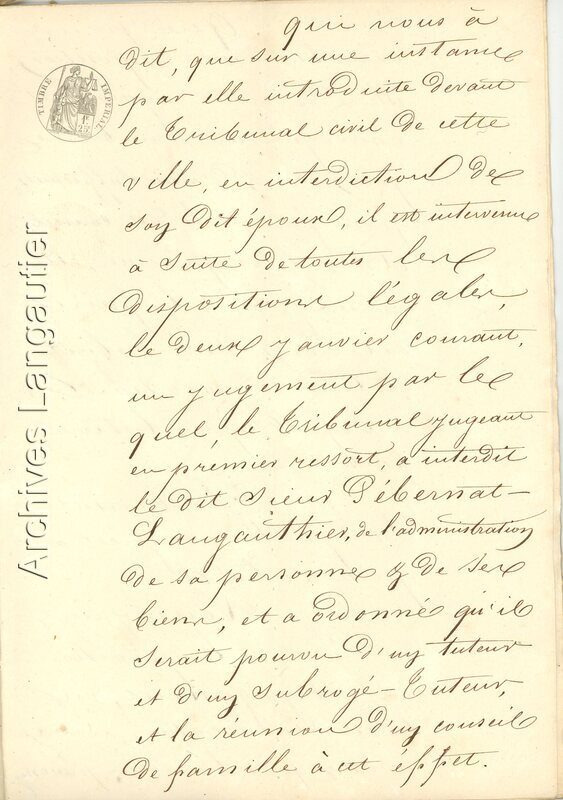 qui nous à
dit, que sur une instance
par elle introduite devant
le Tribunal civil de cette
ville, en interdiction de
son dit époux, il est intervenu
à suite de toutes les
dispositions légales,
le deux janvier courant,
un jugement par le
quel, le Tribunal jugeant
en premier ressort, a interdit
le dit sieur Pébernat-
Langauthier, de l'administration
de sa personne & de ses
biens, et a ordonné qu'il
serait pourvu d'un tuteur
et d'un subrogé-Tuteur,
et la réunion d'un conseil
de famille à cet éffet.
TIMBRE IMPERIAL
Archives Langautier